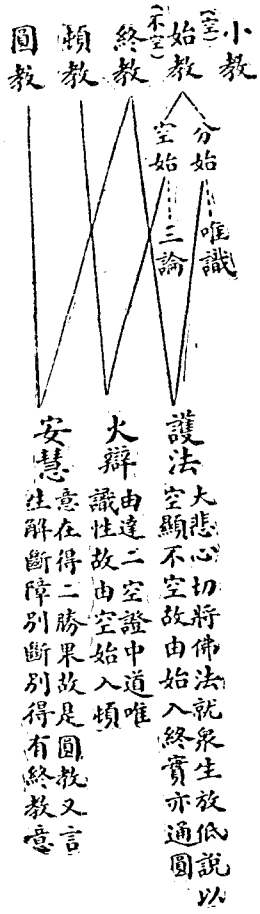 小教
(空)
始教
(不空)
終教
頓教
圓教
分始
唯識
空始
三論
護法
大悲心切將佛法就衆生放低說以
空顯不空故由始入終實亦通圓
火辯
由達二空證中道唯
識性故由空始入頓
安慧
意在得二勝果故是圓教又言
生解斷障別斷別得有終教意